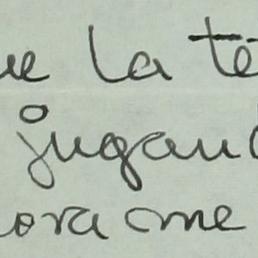 ue la te
jugan
ora me